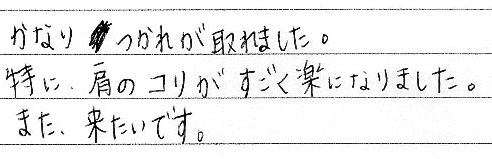 かなりつかれが取れました。
特に、肩のコリがすごく楽になりました。
また、来たいです。